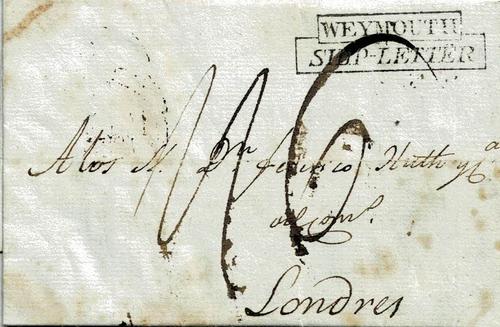 WEYMOUTH
SHIP-LETTER
A los S. Dn. Federico Huth y Ca
del com.
Londres